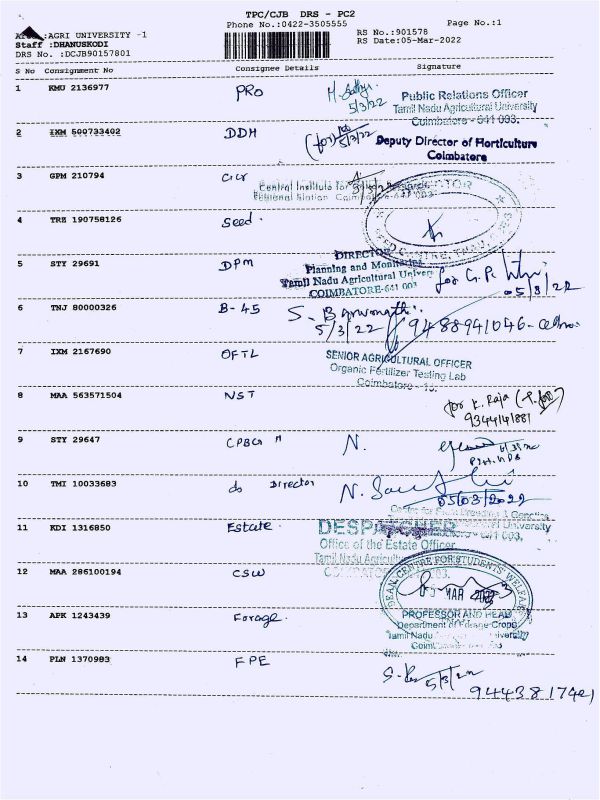 TPC/CJB DRS - PC2
Phone No.:0422-3505555
Page No.:1
:AGRI UNIVERSITY -1
Staff :DHANUSKODI
DRS No. :DCJB90157801
RS No.:901578
RS Date:05-Mar-2022
S No Consignment No Consignee Details Signature
1 KMU 2136977 PRO
5/3/22
Public Relations Officer
Tamil Nadu Agricultural University
Coimbatore - 641 003.
2 IXM 500733402 DDH
(for)
5/3/22
Deputy Director of Horticulture
Coimbatore
3 GPM 210794 CICR
Central Institute for Research
Regional Station Coimbatore 641 003.
4 TRZ 190758126 Seed.
SEED CENTRE, TNAU,
5 STY 29691 DPM
DIRECTOR
Planning and Monitoring
Tamil Nadu Agricultural Univer
COIMBATORE-641 003
for G.P.
05/3/22
6 TNJ 80000326 B-45
S.
5/3/22
9488941046
7 IXM 2167690 OFTL
SENIOR AGRICULTURAL OFFICER
Organic Fertilizer Testing Lab
Coimbatore
8 MAA 563571504 NST
for K. Raja
9344141881
9 STY 29647 CPBG
N.
10 TMI 10033683 do Director
N.
05/03/2022
Centre for Plant Breeding & Genetics
University
641 003.
11 KDI 1316850 Estate.
DESPATCHER
Office of the Estate Officer
Tamil Nadu Agricultu
12 MAA 286100194 CSW
DEAN, CENTRE FOR STUDENTS' WELFARE
MAR
13 APK 1243439 Forage.
PROFESSOR AND HEAD
Department of Forage Crops
Tamil Nadu University
14 PLN 1370983 FPE
S.
5/3/22